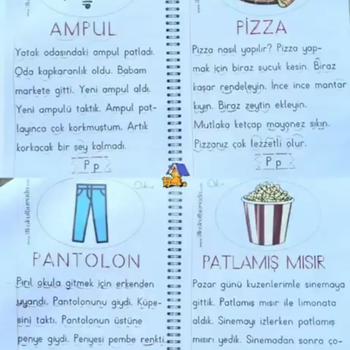 AMPUL
Yatak odasındaki ampul patladı.
Oda kapkaranlık oldu. Babam
markete gitti. Yeni ampul aldı.
Yeni ampulü taktık. Ampul pat-
layınca çok korkmuştum. Artık
korkacak bir şey kalmadı.
P p
PİZZA
Pizza nasıl yapılır? Pizza yap-
mak için biraz sucuk kesin. Biraz
kaşar rendeleyin. İnce ince mantar
kıyın. Biraz zeytin ekleyin.
Mutlaka ketçap mayonez sıkın.
Pizzanız çok lezzetli olur.
P p
PANTOLON
Pırıl okula gitmek için erkenden
uyandı. Pantolonunu giydi. Küpe-
sini taktı. Pantolonun üstüne
penye giydi. Penyesi pembe renkti.
PATLAMIŞ MISIR
Pazar günü kuzenlerimle sinemaya
gittik. Patlamış mısır ile limonata
aldık. Sinemayı izlerken patlamış
mısırı yedik. Sinemadan sonra ço-